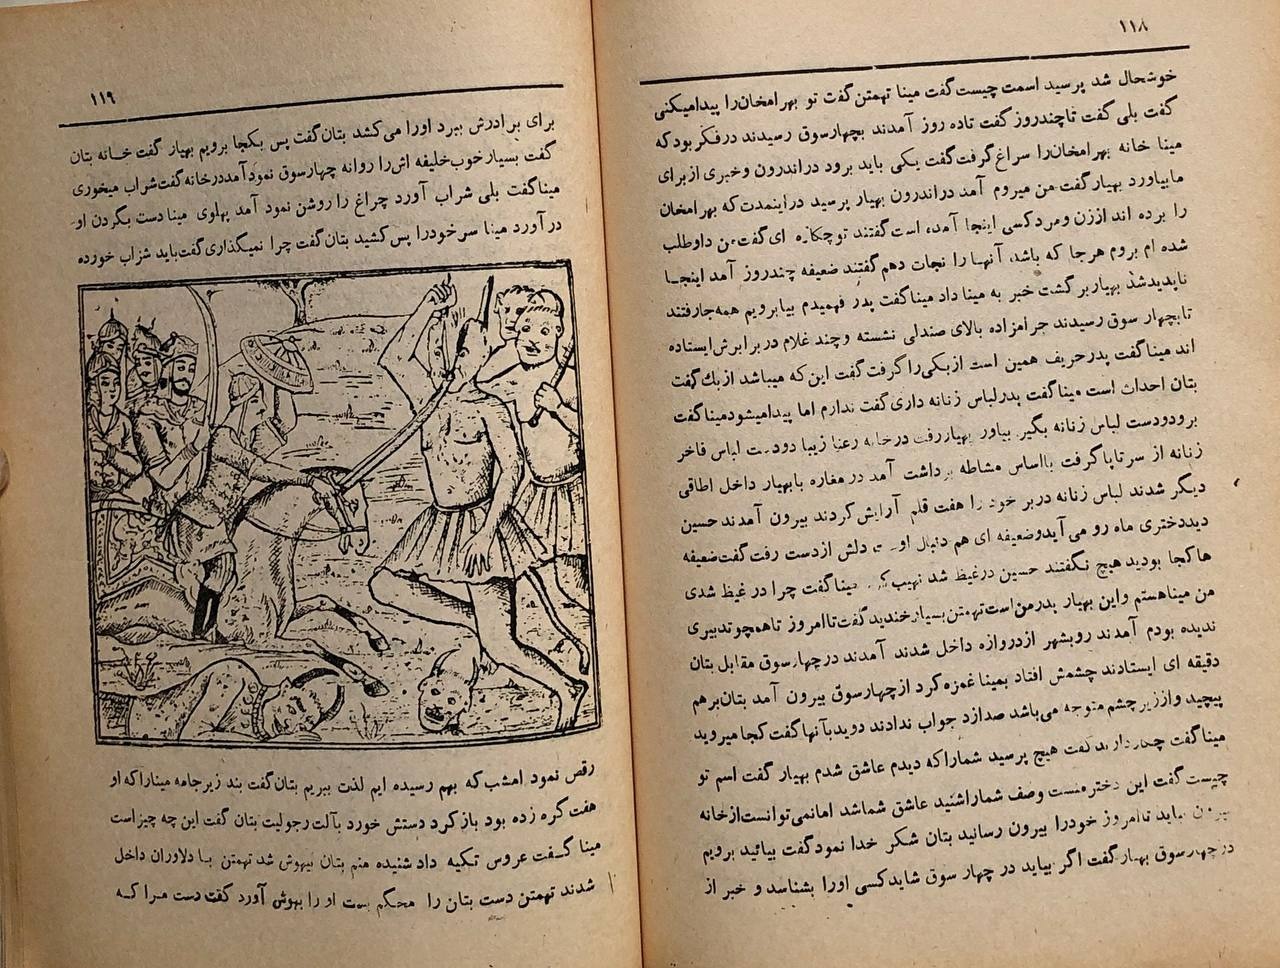 ۱۱۸
خوشحال شد پرسید اسمت چیست گفت مینا تهمتن گفت تو بهرامخان را پیدا میکنی
گفت بلی گفت تا چند روز گفت تا ده روز آمدند بچهارسوق رسیدند در فکر بود که
مینا خانه بهرامخان را سراغ گرفت گفت یکی باید برود در اندرون و خبری از برای
ما بیاورد بهیار گفت من میروم آمد در اندرون بهیار پرسید در اینمدت که بهرامخان
را برده اند از زن و مرد کسی اینجا آمده است گفتند تو چکاره ای گفت من داوطلب
شده ام بروم هر جا که باشد آنها را نجات دهم گفتند ضعیفه چند روز آمد اینجا
ناپدید شد بهیار برگشت خبر به مینا داد مینا گفت پدر فهمیدم بیا برویم همه جا رفتند
تا بچهار سوق رسیدند حرامزاده بالای صندلی نشسته و چند غلام در برابرش ایستاده
اند مینا گفت پدر حریف همین است از یکی را گرفت گفت این که میباشد از یك گفت
بتان احداث است مینا گفت پدر لباس زنانه داری گفت ندارم اما پیدا میشود مینا گفت
برو دو دست لباس زنانه بگیر بیاور بهیار رفت در خانه رعنا زیبا دو دست لباس فاخر
زنانه از سر تا پا گرفت با اساس مشاطه برداشت آمد در مغاره با بهیار داخل اطاقی
دیگر شدند لباس زنانه در بر خود را هفت قلم آرایش کردند بیرون آمدند حسین
دید دختری ماه رو می آید و ضعیفه ای هم دنبال او دلش از دست رفت گفت ضعیفه
ها کجا بودید هیچ نگفتند حسین در غیظ شد نهیب مینا گفت چرا در غیظ شدی
من مینا هستم و این بهیار پدر من است تهمتن بسیار خندید گفت تا امروز تا همچو تدبیری
ندیده بودم آمدند رو بشهر از دروازه داخل شدند آمدند در چهار سوق مقابل بتان
دقیقه ای ایستادند چشمش افتاد بمینا غمزه کرد از چهار سوق بیرون آمد بتان برهم
پیچید و از زیر چشم متوجه می باشد صدا زد جواب ندادند دوید با آنها گفت کجا میروید
مینا گفت چکار دارید گفت هیچ پرسید شما را که دیدم عاشق شدم بهیار گفت اسم تو
چیست گفت این دختر منست وصف شما را شنید عاشق شما شد اما نمی توانست از خانه
بیرون بیاید تا امروز خود را بیرون رسانید بتان شکر خدا نمود گفت بیائید برویم
در چهار سوق بهیار گفت اگر بیاید در چهار سوق شاید کسی او را بشناسد و خبر از
۱۱۹
برای برادرش ببرد او را می کشد بتان گفت پس بکجا برویم بهیار گفت خانه بتان
گفت بسیار خوب خلیفه اش را روانه چهارسوق نمود آمد در خانه گفت شراب میخوری
مینا گفت بلی شراب آورد چراغ را روشن نمود آمد پهلوی مینا دست بگردن او
در آورد مینا سر خود را پس کشید بتان گفت چرا نمیگذاری گفت باید شراب خورده
رقص نمود امشب که بهم رسیده ایم لذت ببریم بتان گفت بند زیر جامه مینا را که او
هفت گره زده بود باز کرد دستش خورد بآلت رجولیت بتان گفت این چه چیز است
مینا گفت عروس تکیه داد شنیده منم بتان بیهوش شد تهمتن با دلاوران داخل
شدند تهمتن دست بتان را محکم بست او را بهوش آورد گفت دست مرا که